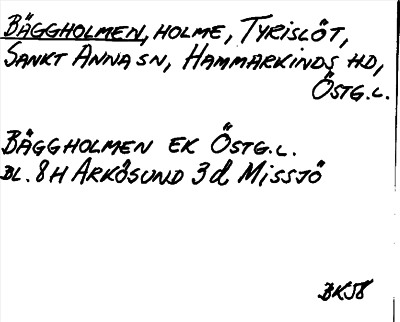 BÄGGHOLMEN, HOLME, TYRISLÖT,
SANKT ANNA SN, HAMMARKINDS HD,
ÖSTG.L.
BÄGGHOLMEN EK ÖSTG.L.
BL. 8H ARKÖSUND 3d MISSJÖ
BK58